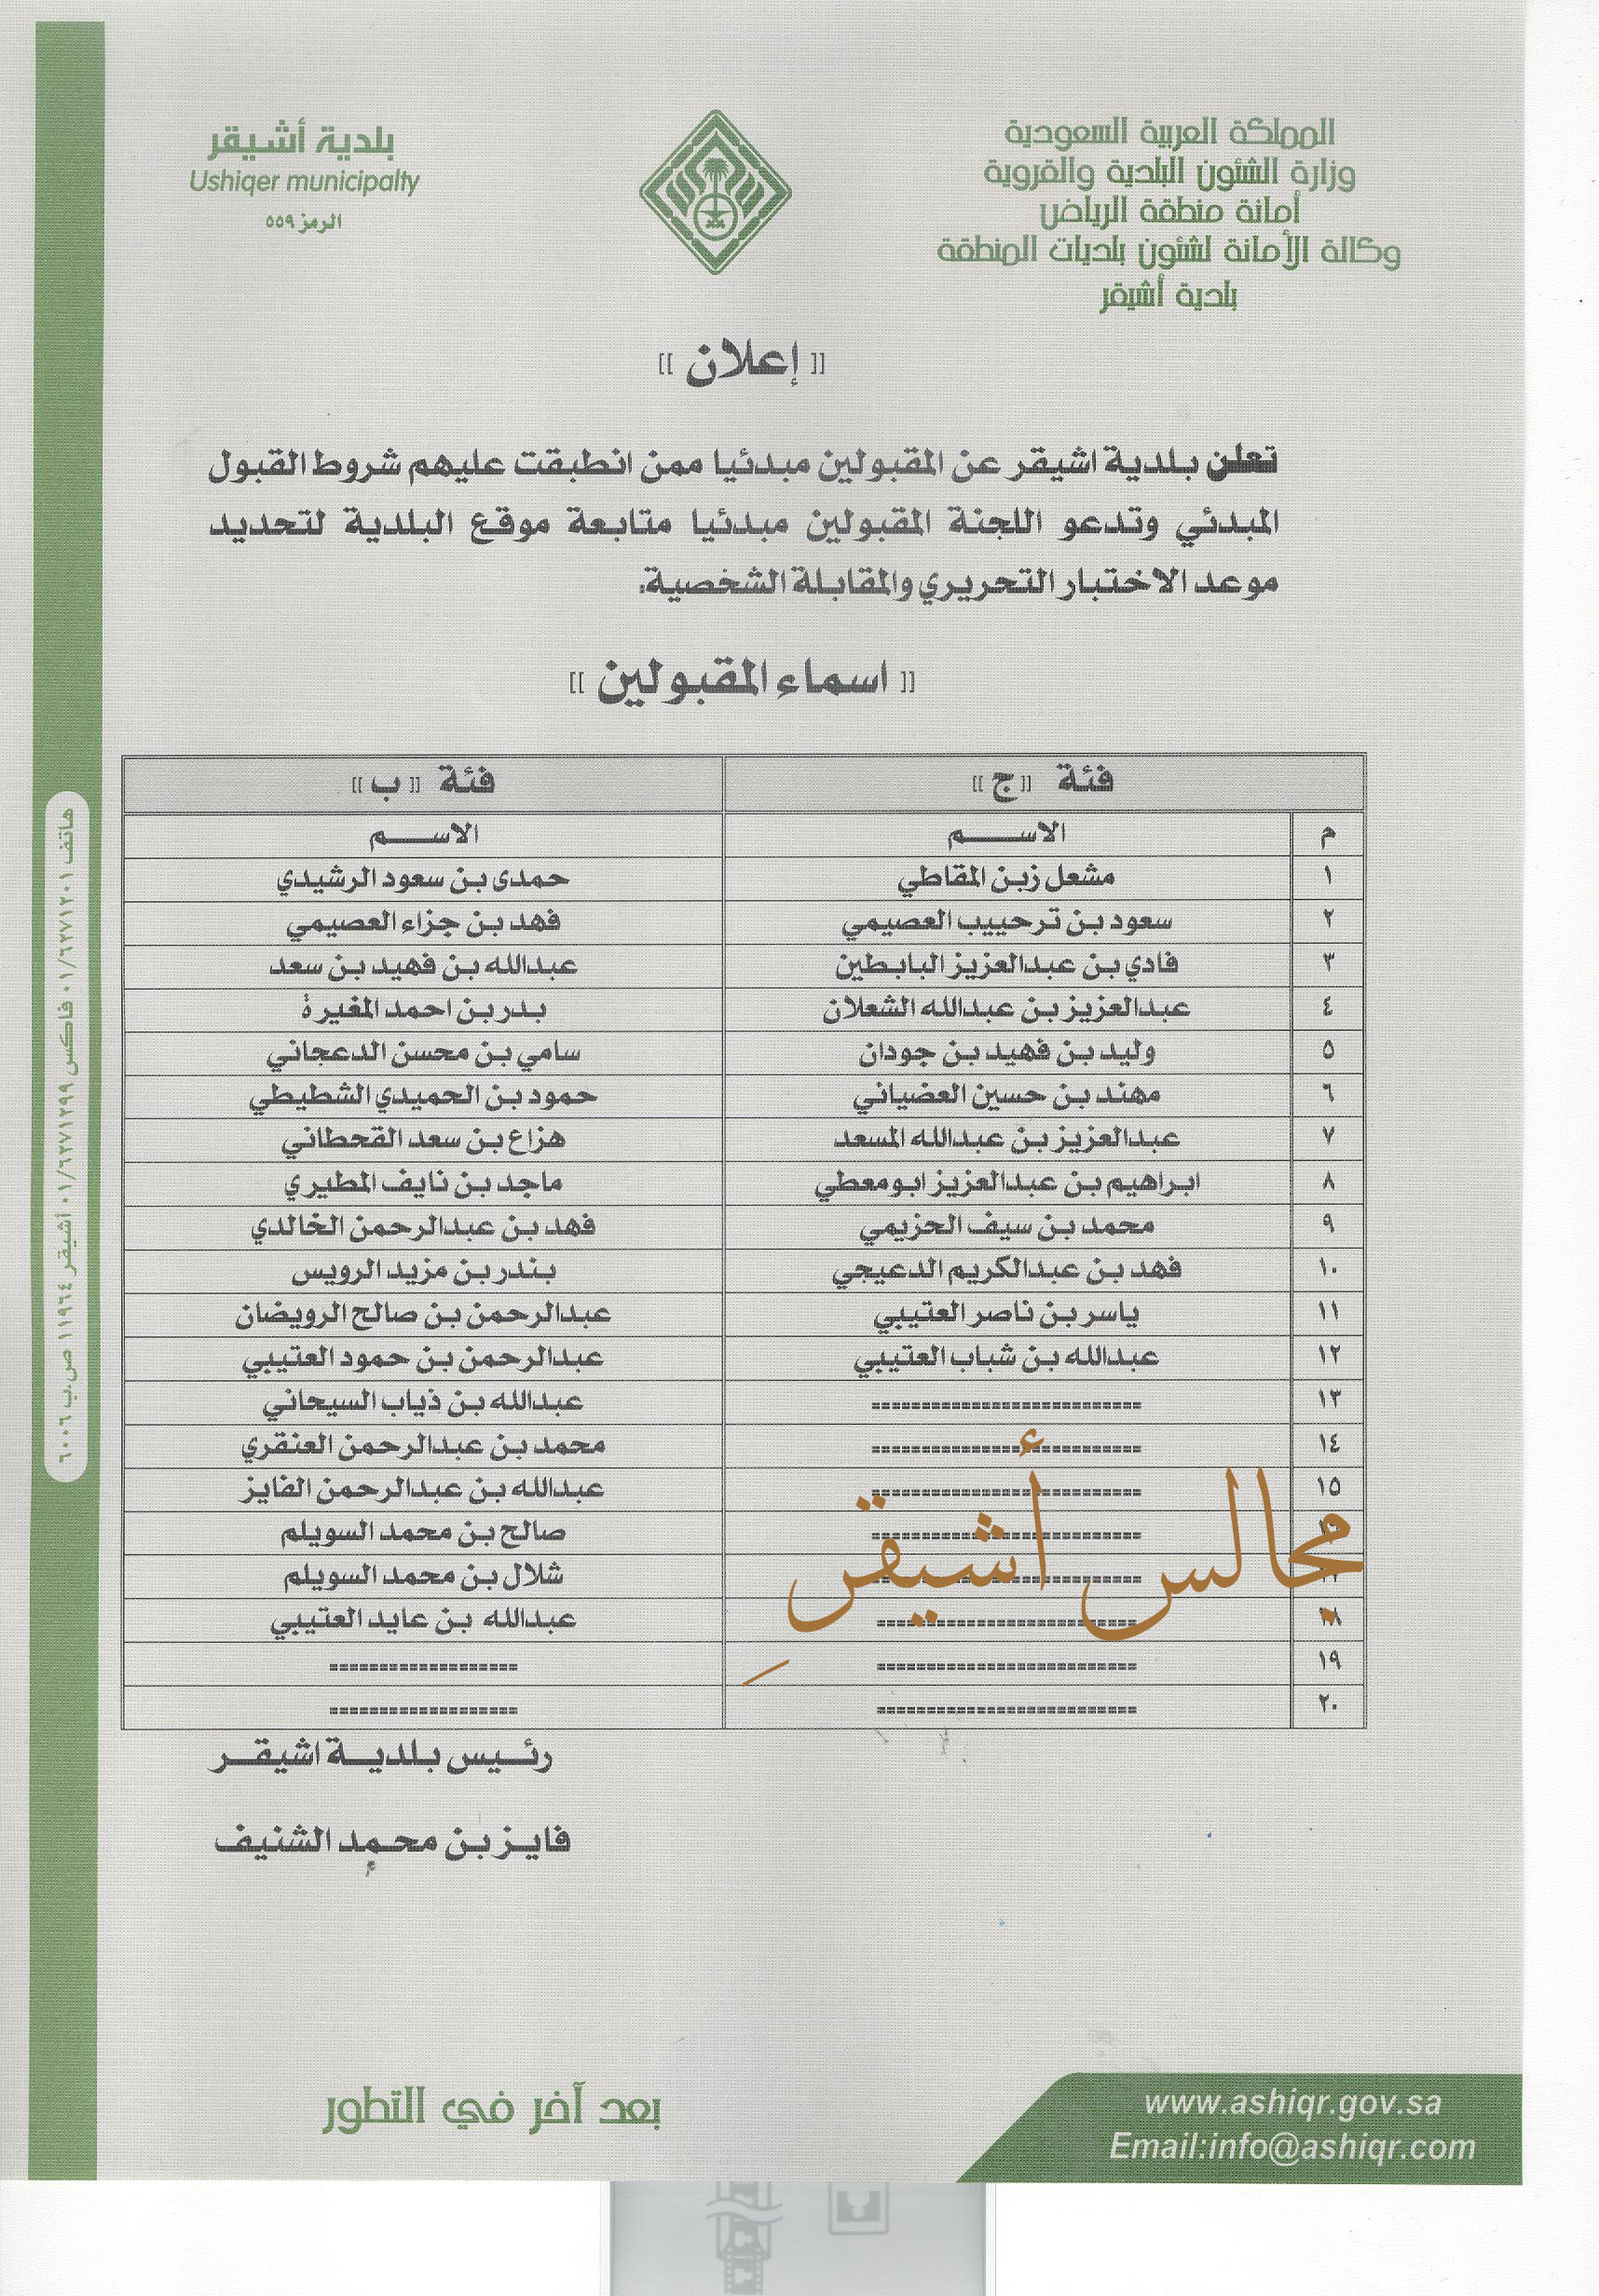 المملكة العربية السعودية
وزارة الشئون البلدية والقروية
أمانة منطقة الرياض
وكالة الأمانة لشئون بلديات المنطقة
بلدية أشيقر
بلدية أشيقر
Ushiqer municipalty
الرمز ٥٥٩
[[ إعلان ]]
تعلن بلدية اشيقر عن المقبولين مبدئيا ممن انطبقت عليهم شروط القبول
المبدئي وتدعو اللجنة المقبولين مبدئيا متابعة موقع البلدية لتحديد
موعد الاختبار التحريري والمقابلة الشخصية.
[[ اسماء المقبولين ]]
فئة [[ ج ]] فئة [[ ب ]]
م الاســـــم الاســـــم
١ مشعل زبن المقاطي حمدى بن سعود الرشيدي
٢ سعود بن ترحييب العصيمي فهد بن جزاء العصيمي
٣ فادي بن عبدالعزيز البابطين عبدالله بن فهيد بن سعد
٤ عبدالعزيز بن عبدالله الشعلان بدر بن احمد المغيرة
٥ وليد بن فهيد بن جودان سامي بن محسن الدعجاني
٦ مهند بن حسين العضياني حمود بن الحميدي الشطيطي
٧ عبدالعزيز بن عبدالله المسعد هزاع بن سعد القحطاني
٨ ابراهيم بن عبدالعزيز ابومعطي ماجد بن نايف المطيري
٩ محمد بن سيف الحزيمي فهد بن عبدالرحمن الخالدي
١٠ فهد بن عبدالكريم الدعيجي بندر بن مزيد الرويس
١١ ياسر بن ناصر العتيبي عبدالرحمن بن صالح الرويضان
١٢ عبدالله بن شباب العتيبي عبدالرحمن بن حمود العتيبي
١٣ عبدالله بن ذياب السيحاني
١٤ محمد بن عبدالرحمن العنقري
١٥ عبدالله بن عبدالرحمن الفايز
١٦ صالح بن محمد السويلم
١٧ شلال بن محمد السويلم
١٨ عبدالله بن عايد العتيبي
١٩
٢٠
مجالس أشيقر
رئيس بلدية اشيقر
فايز بن محمد الشنيف
هاتف ٠١/٦٢٧١٢٠١ فاكس ٠١/٦٢٧١٢٩٩ أشيقر ١١٩٦٤ ص.ب ٦٠٠٦
بعد آخر في التطور
www.ashiqr.gov.sa
Email:info@ashiqr.com